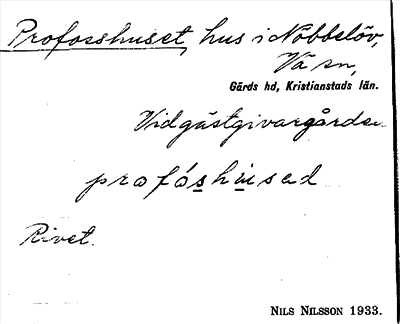 Profosshuset, hus i Nöbbelöv,
Vä sn,
Gärds hd, Kristianstads län.
Vid gästgivargården
profóshùsad
Rivet.
NILS NILSSON 1933.